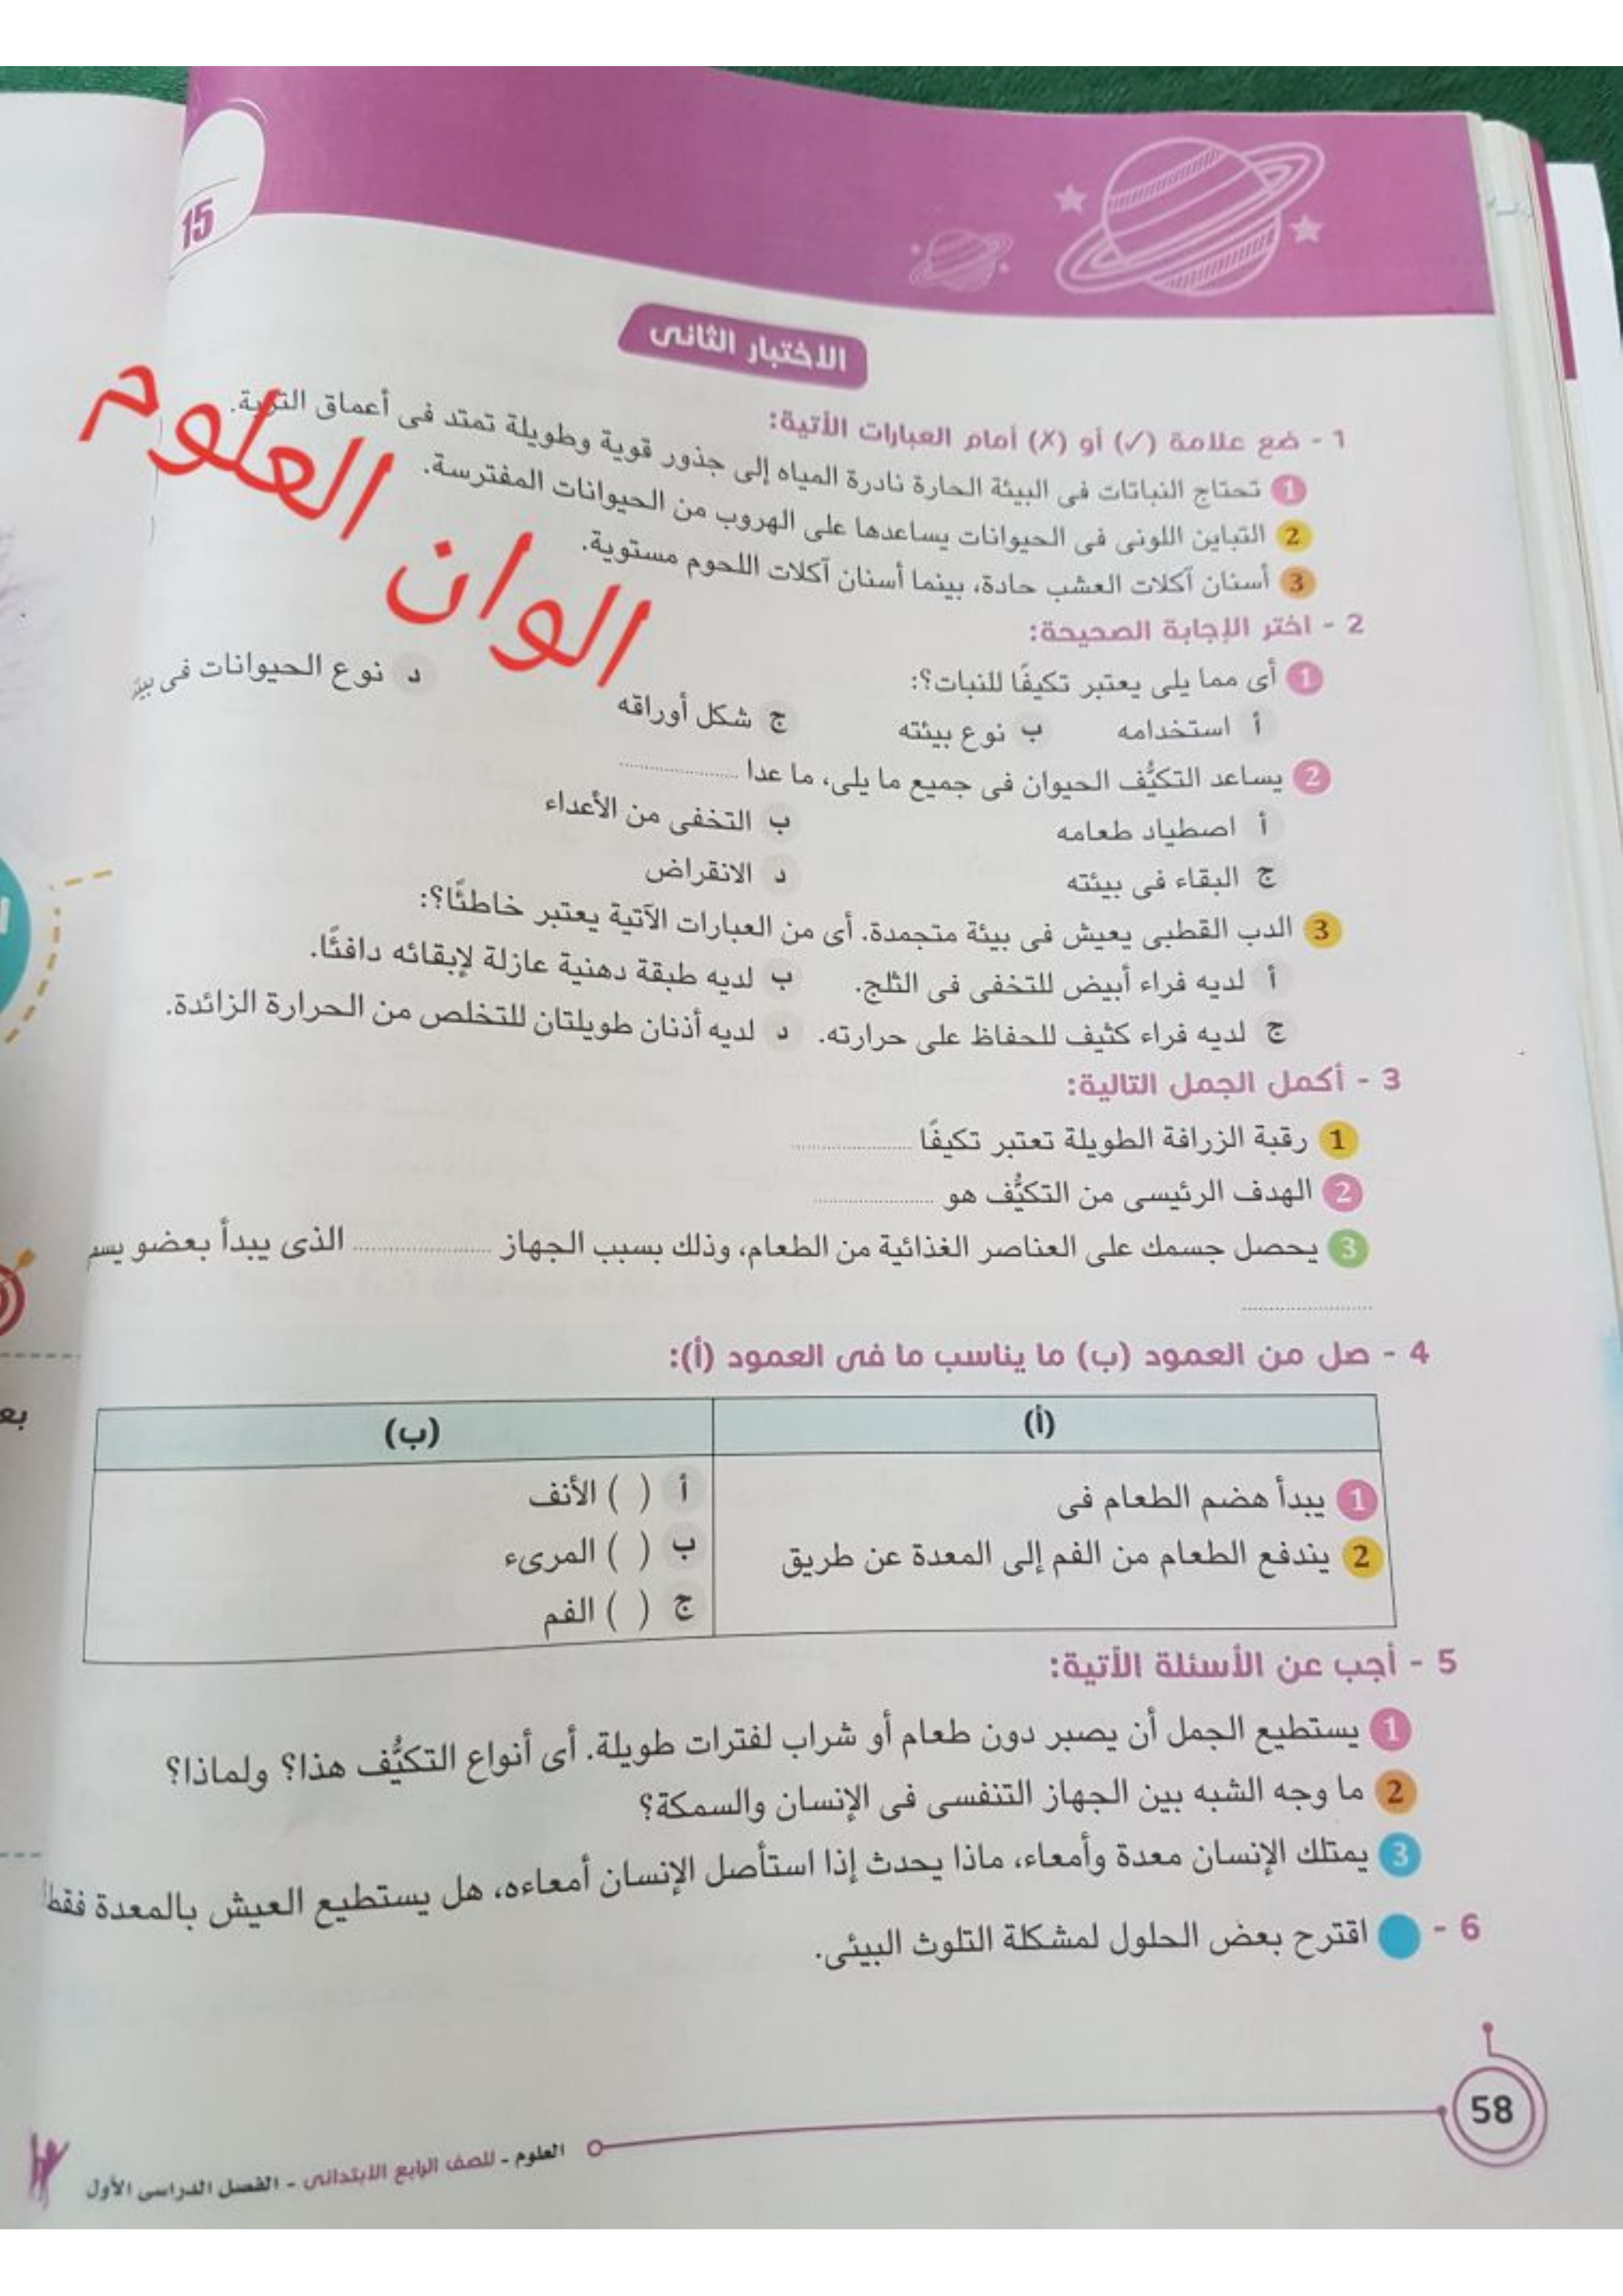 15
الاختبار الثانى
1 - ضع علامة (✓) أو (X) أمام العبارات الأتية:
1 تحتاج النباتات فى البيئة الحارة نادرة المياه إلى جذور قوية وطويلة تمتد فى أعماق التربة.
2 التباين اللونى فى الحيوانات يساعدها على الهروب من الحيوانات المفترسة.
3 أسنان آكلات العشب حادة، بينما أسنان آكلات اللحوم مستوية.
الوان العلوم
2 - اختر الإجابة الصحيحة:
1 أى مما يلى يعتبر تكيفًا للنبات؟:
أ استخدامه ب نوع بيئته ج شكل أوراقه د نوع الحيوانات فى
2 يساعد التكيُّف الحيوان فى جميع ما يلى، ما عدا ..........
أ اصطياد طعامه ب التخفى من الأعداء
ج البقاء فى بيئته د الانقراض
3 الدب القطبى يعيش فى بيئة متجمدة. أى من العبارات الآتية يعتبر خاطئًا؟:
أ لديه فراء أبيض للتخفى فى الثلج. ب لديه طبقة دهنية عازلة لإبقائه دافئًا.
ج لديه فراء كثيف للحفاظ على حرارته. د لديه أذنان طويلتان للتخلص من الحرارة الزائدة.
3 - أكمل الجمل التالية:
1 رقبة الزرافة الطويلة تعتبر تكيفًا ..........
2 الهدف الرئيسى من التكيُّف هو ..........
3 يحصل جسمك على العناصر الغذائية من الطعام، وذلك بسبب الجهاز .......... الذى يبدأ بعضو
..........
4 - صل من العمود (ب) ما يناسب ما فى العمود (أ):
(أ) (ب)
1 يبدأ هضم الطعام فى أ ( ) الأنف
2 يندفع الطعام من الفم إلى المعدة عن طريق ب ( ) المرىء
ج ( ) الفم
5 - أجب عن الأسئلة الأتية:
1 يستطيع الجمل أن يصبر دون طعام أو شراب لفترات طويلة. أى أنواع التكيُّف هذا؟ ولماذا؟
2 ما وجه الشبه بين الجهاز التنفسى فى الإنسان والسمكة؟
3 يمتلك الإنسان معدة وأمعاء، ماذا يحدث إذا استأصل الإنسان أمعاءه، هل يستطيع العيش بالمعدة فقط
6 - اقترح بعض الحلول لمشكلة التلوث البيئى.
58
العلوم - للصف الرابع الابتدائى - الفصل الدراسى الأول